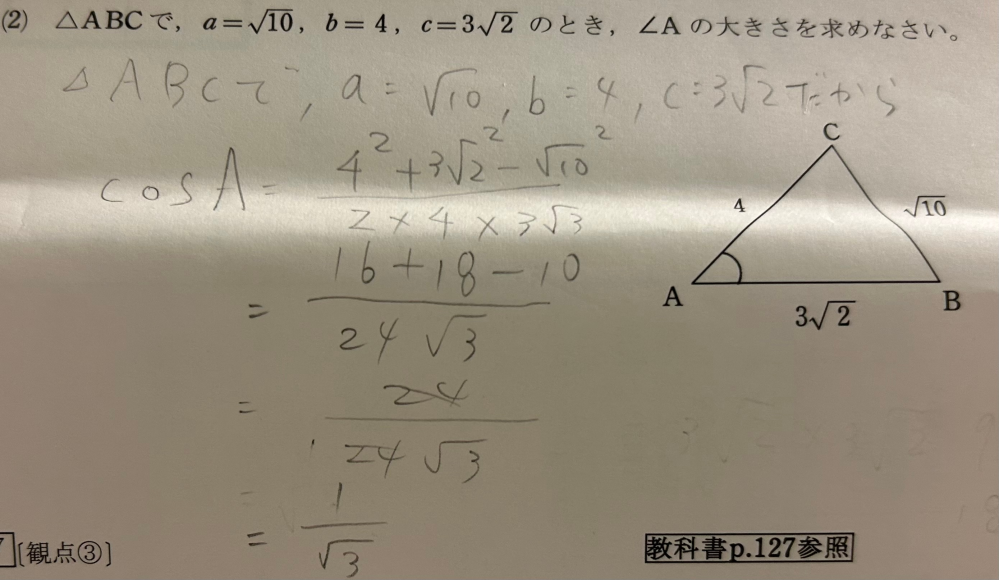 (2) △ABCで，a=√10，b=4，c=3√2 のとき，∠A の大きさを求めなさい。
△ABCで, a=√10, b=4, c=3√2だから
cosA= (4²+3√2²-√10²)/(2×4×3√3)
= (16+18-10)/(24√3)
= 24/(24√3)
= 1/√3
C
4
√10
A
B
3√2
[観点③]
教科書p.127参照